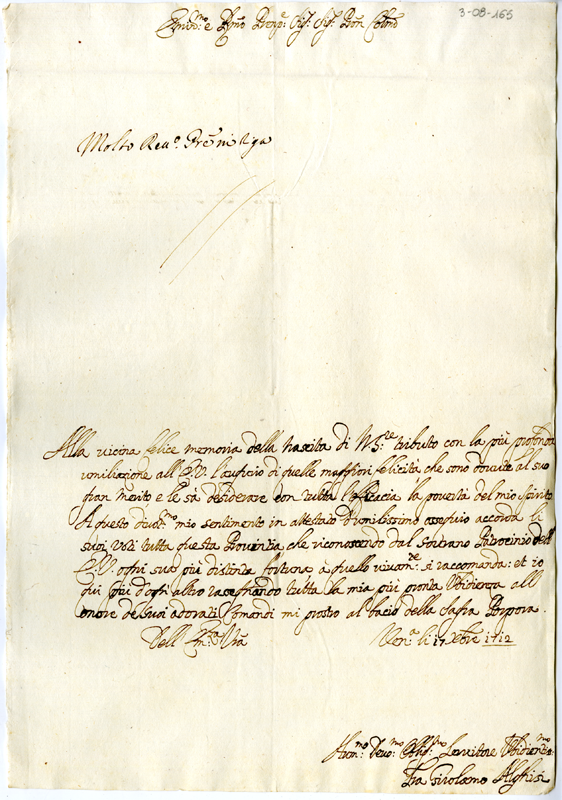 3-08-165
Em̃o e Rm̃o Prc͠pe Sig.r Sig.r Pron Colmo
Molto Reu.o
Alla vicina felice memoria della Nascita di N. S.re tributo con la più profonda
umiliazione all' E. V. l'auficio di quelle maggiori felicità che sono dovute al suo
gran Merito e le sà desiderare con tutta l'efficacia la povertà del mio Spirito
A questo diuot.mo mio sentimento in attestato d'umilissimo ossequio accorda li
suoi Voti tutta questa Provintia che riconoscendo dal Sourano Patrocinio dell'
E. V. ogni sua più distinta fortuna a quello si raccomanda: et io
qui più d'ogn' altro rassegnando tutta la mia più pronta Vbidienza all'
onore de suoi adorati Comandi mi prostro al bacio della Sagra Porpora.
Dell' Em.za Vr̃a
Ven.a li 17 Xbre 1712
Hum.mo Deuo.mo Obbl.mo Seruitore Vbidientis.mo
Fra Girolamo Alghisi